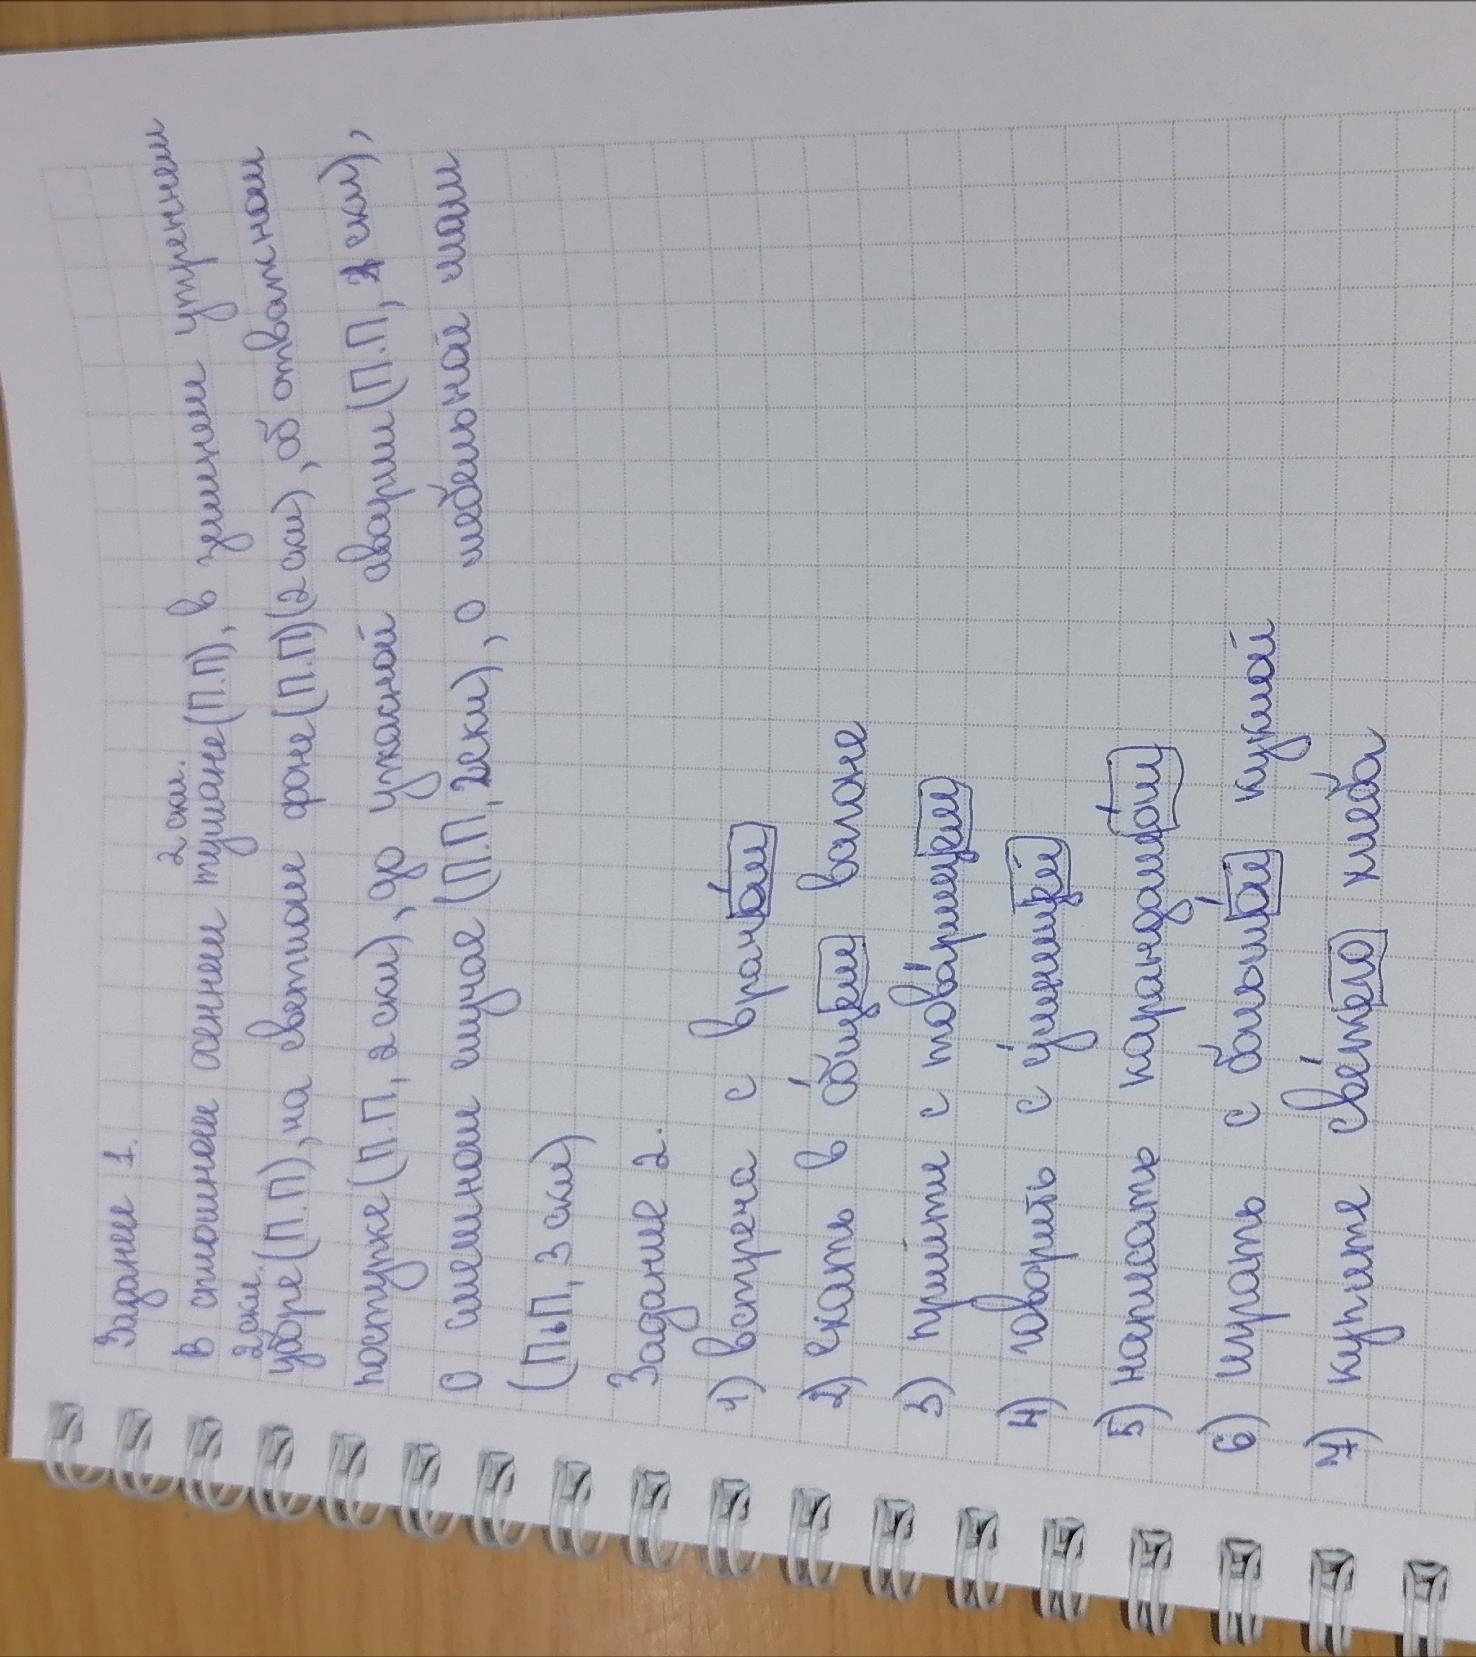 Задание 1.
В сплошном осеннем тумане (П.П) 2 скл., в зимнем утреннем
уборе (П.П) 2 скл., на светлом фоне (П.П) (2 скл), об отважном
поступке (П.П, 2 скл), до ужасной аварии (П.П, 1 скл),
О смешном случае (П.П, 2скл), о мебельной шали
(П.П, 3 скл)
Задание 2.
1) встреча с врачо́м
2) ехать в о́бщем вагоне
3) придите с това́рищем
4) говорить с у́ченицей
5) написать карандашо́м
6) играть с большо́й куклой
7) купите све́жего хлеба